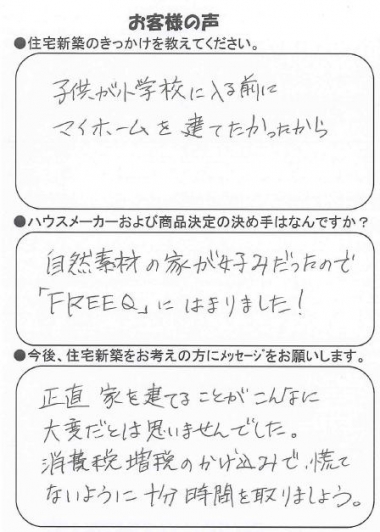 お客様の声
●住宅新築のきっかけを教えてください。
子供が小学校に入る前に
マイホームを建てたかったから
●ハウスメーカーおよび商品決定の決め手はなんですか？
自然素材の家が好みだったので
「FREEQ」にはまりました！
●今後、住宅新築をお考えの方にメッセージをお願いします。
正直 家を建てることがこんなに
大変だとは思いませんでした。
消費税増税のかけ込みで、慌て
ないように十分時間を取りましょう。